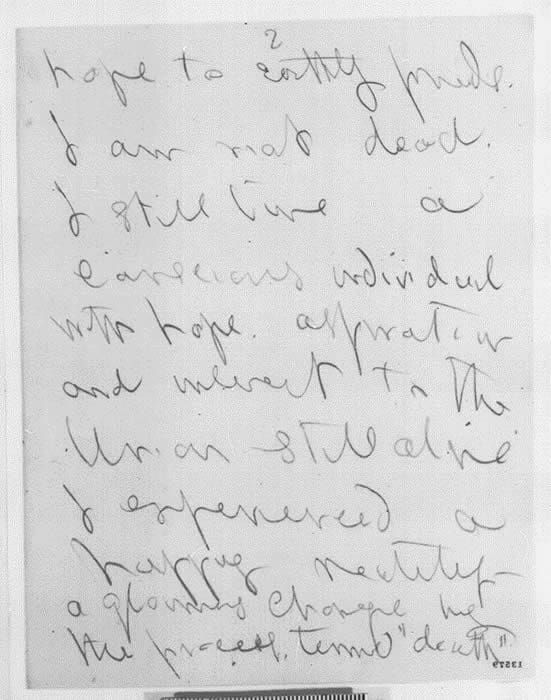 2
hope to earthly friends.
I am not dead.
I still live a
conscious individual
with hope. aspiration
and interest to the
Union still alive
I experienced a
happy reality -
a glorious change by
the process termed "death"
13579